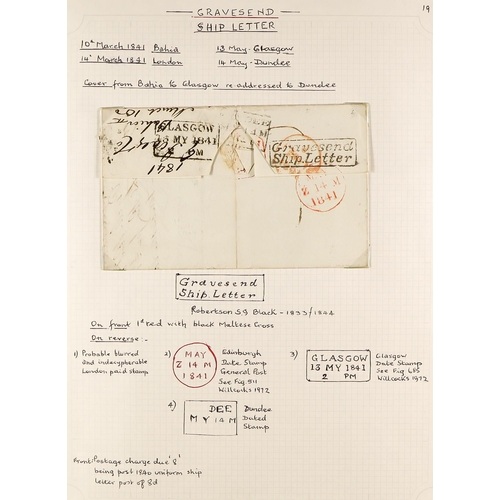 GRAVESEND
SHIP LETTER
19
10th March 1841 Bahia 13 May - Glasgow
14th March 1841 London 14 May - Dundee
Cover from Bahia to Glasgow re addressed to Dundee
GLASGOW
MY 1841
PM
1841
Gravesend
Ship Letter
Z 14 M
1841
Gravesend
Ship Letter
Robertson S9 Black - 1833/1844
On front 1d red with black Maltese Cross
On reverse :-
1) Probable blurred
and indecypherable
London paid stamp
2) MAY
Z 14 M
1841
Edinburgh
Date Stamp
General Post
See Fig 511
Willcocks 1972
3) GLASGOW
13 MY 1841
2 PM
Glasgow
Date Stamp
See Fig 655
Willcocks 1972
4) DEE
MY 14 M
Dundee
Dated
Stamp
Front: Postage charge due '8'
being post 1840 uniform ship
letter post of 8d